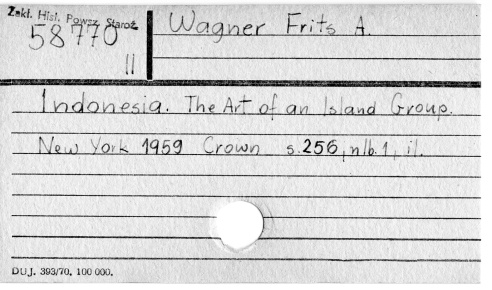 Zakł. Hist. Powsz. Staroż.
58770
II
Wagner Frits A.
Indonesia. The Art of an Island Group.
New York 1959 Crown s.256, nlb.1, il.
DUJ. 393/70. 100 000.